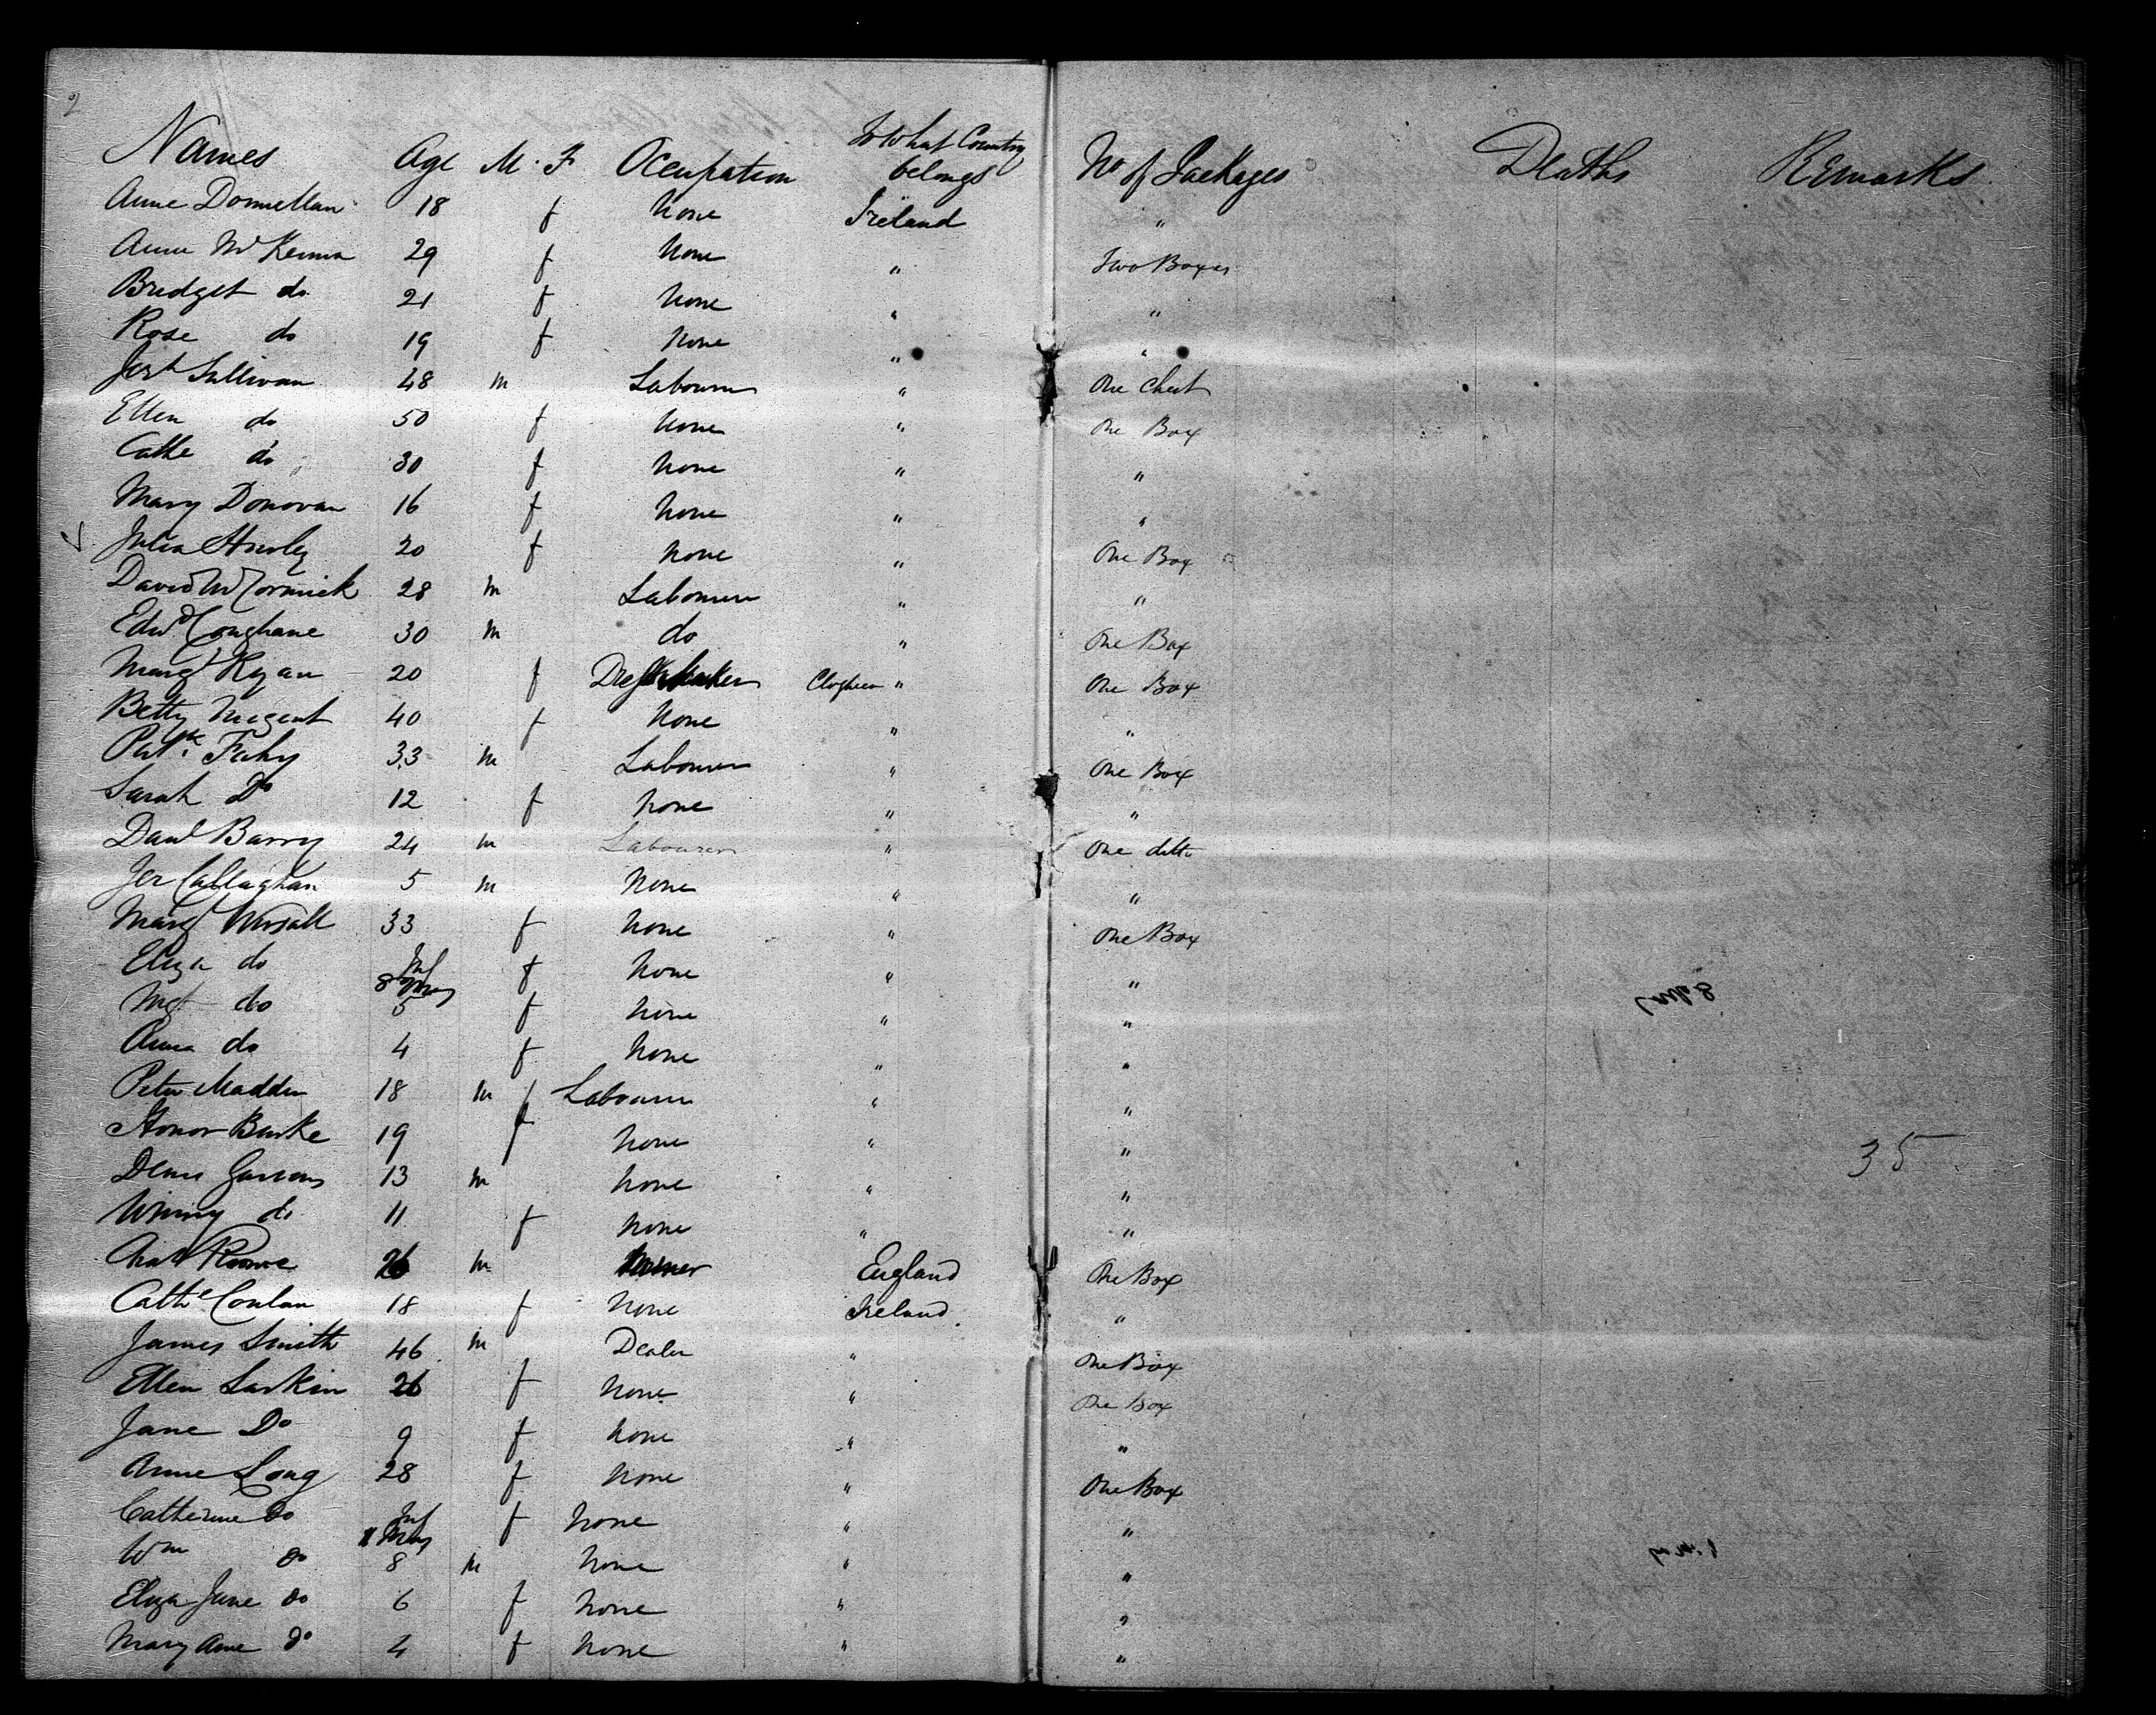 2
Names Age M. F Occupation To What Country belongs No of Packages Deaths Remarks
Anne Donnellan 18 f None Ireland "
Anne McKenna 29 f None " Two Boxes
Bridget do 21 f None " "
Rose do 19 f None " "
Jerh Sullivan 48 m Labourer " One Chest
Ellen do 50 f None " One Box
Cathe do 30 f None " "
Mary Donovan 16 f None " "
Julia Hurley 20 f None " One Box
David McCormick 28 m Labourer " "
Edwd Coughane 30 m do " One Box
Margt Ryan 20 f Dressmaker Clogheen " One Box
Betty Nugent 40 f None " "
Patk Fahy 33 m Labourer " One Box
Sarah Do 12 f None " "
Danl Barry 24 m Labourer " One ditto
Jer Callaghan 5 m None " "
Margt 33 f None " One Box
Eliza do Inf 8 Mos f None " "
Mgt do 5 f None " "
Anna do 4 f None " "
Peter Madden 18 m f Labourer " "
Honor Burke 19 f None " "
35
Denis 13 m None " "
Winny do 11 f None " "
Chas 26 m Miner England One Box
Cathe Conlan 18 f None Ireland "
James Smith 46 m Dealer " One Box
Ellen Larkin 26 f None " One Box
Jane Do 9 f None " "
Anne Long 28 f None " One Box
Catherine Do Inf Mos f None " "
Wm Do 8 m None " "
Eliza Jane Do 6 f None " "
Mary Anne Do 4 f None " "